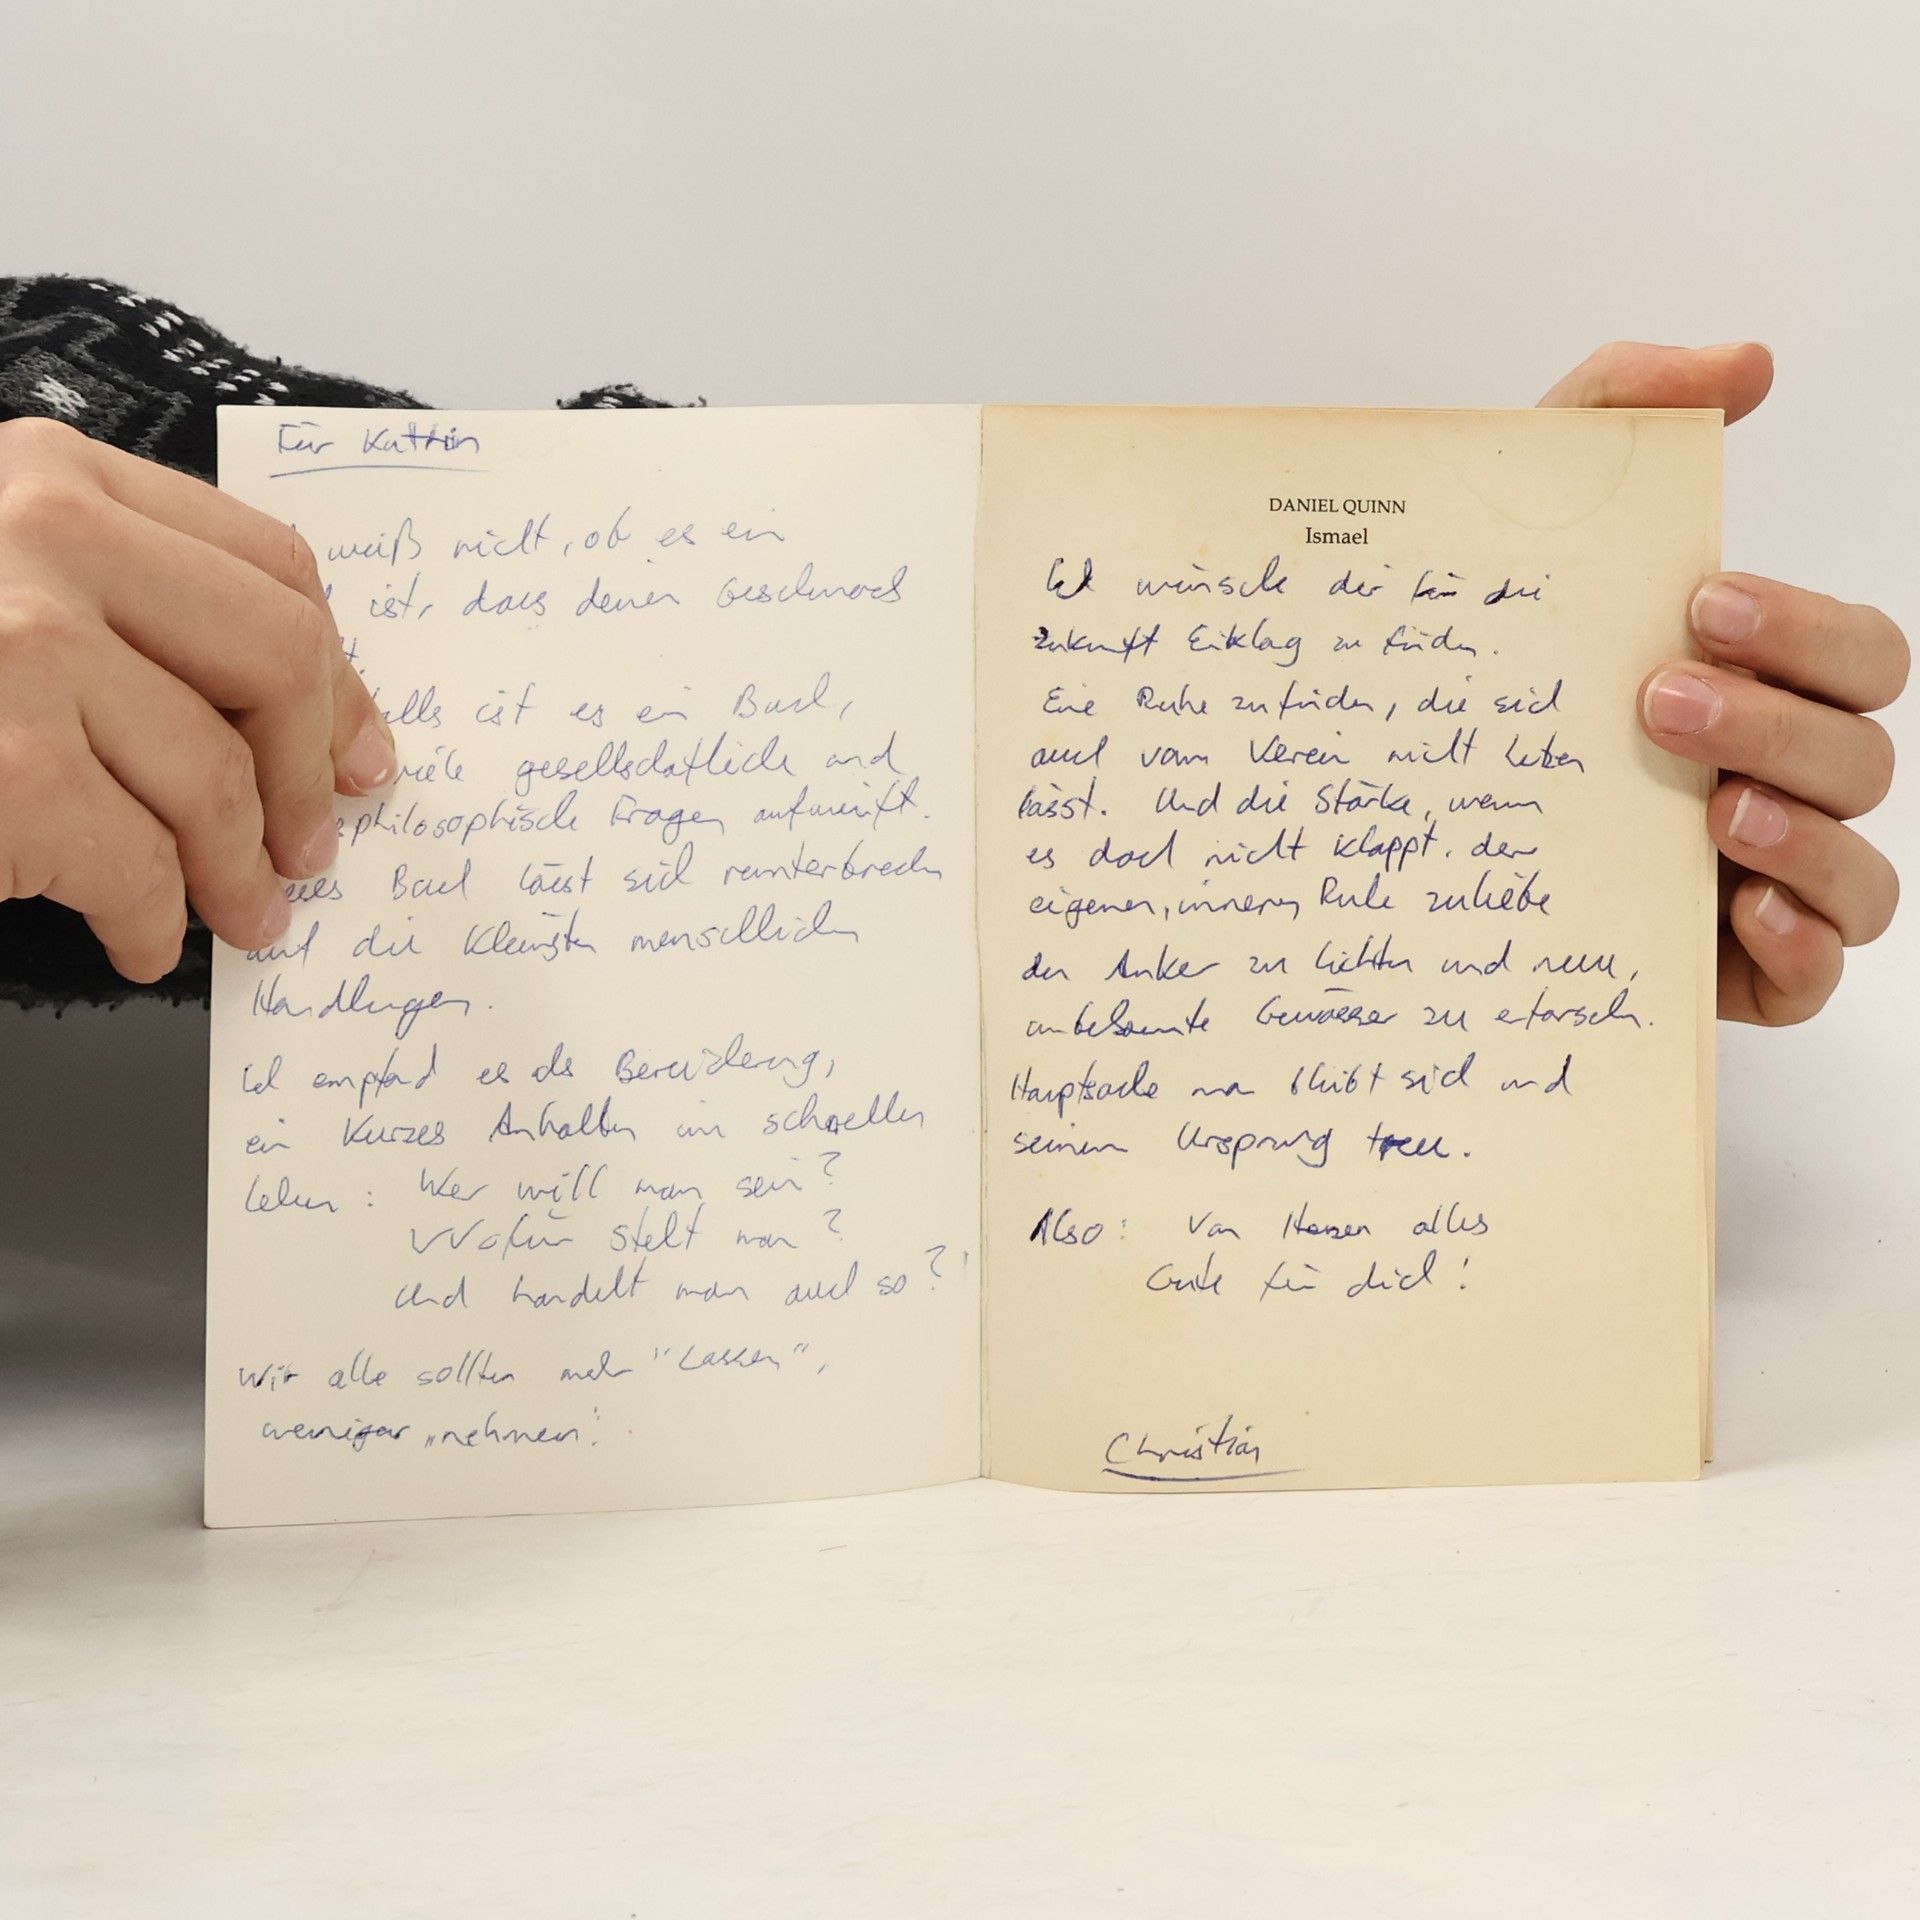 Für Kathrin
weiß nicht, ob es ein
ist, dass deinen Geschmack
ist es ein Buch,
viele gesellschaftliche und
philosophische Fragen aufwirft.
Buch lässt sich runterbrechen
auf die kleinsten menschlichen
Handlungen.
Ich empfand es als Bereicherung,
ein kurzes Anhalten im schnellen
Leben: Wer will man sein?
Wofür steht man?
Und handelt man auch so?
Wir alle sollten mehr "Lassen",
weniger „nehmen".
DANIEL QUINN
Ismael
Ich wünsche dir für die
Zukunft Einklang zu finden.
Eine Ruhe zu finden, die sich
auch vom Verein nicht
lässt. Und die Stärke, wenn
es doch nicht klappt, der
eigenen, inneren Ruhe zuliebe
den Anker zu lichten und neue,
unbekannte Gewässer zu erforschen.
Hauptsache man bleibt sich und
seinem Ursprung treu.
Also: Von Herzen alles
Gute für dich!
Christian